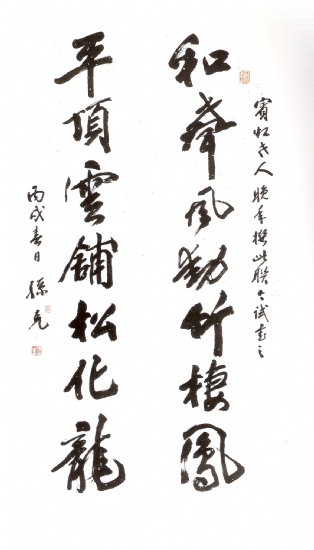 賓虹老人晚年撰此聯今試書之
和聲風動竹棲鳳
平頂雲舖松化龍
丙戌春日孫克